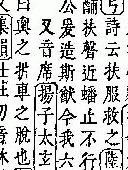 詩云扶服救之
扶聲近蟠止不行
公爰造斯猷令我六
又音席揚子太玄
曰輿之折車之脫也
韻